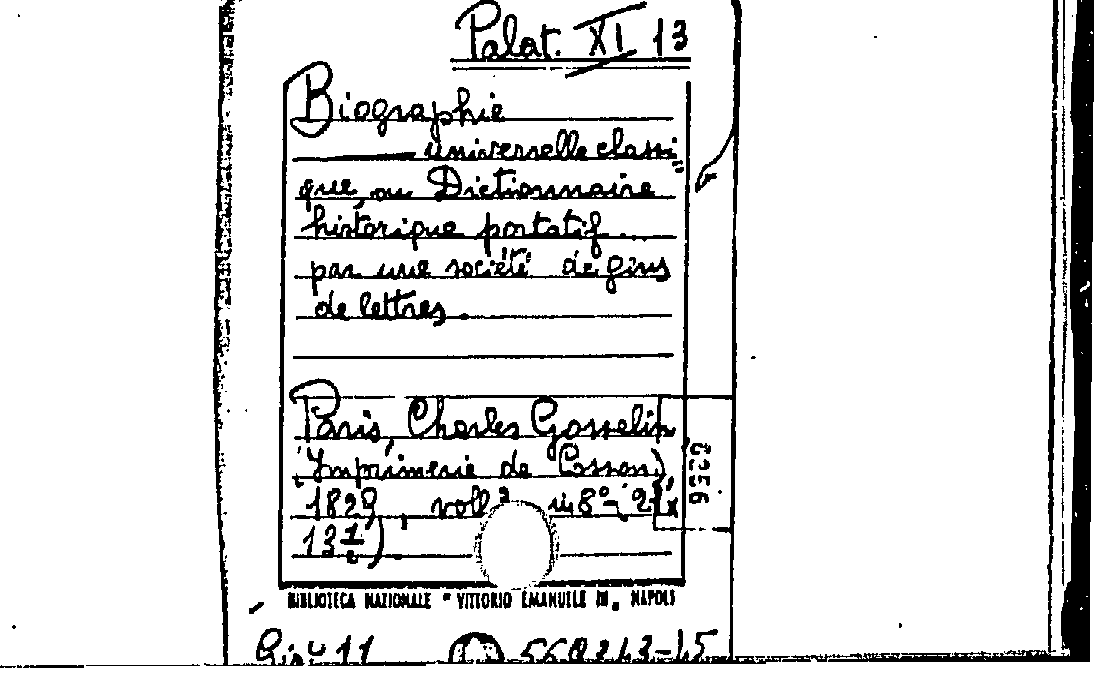 Palat. XI 13
Biographie
universelle classi=
que, ou Dictionnaire
historique portatif...
par une société de gens
de lettres.
Paris, Charles Gosselin
(Imprimerie de Cosson)
1829, voll. 3 in 8°- (21 x
13 1/2)
6556
BIBLIOTECA NAZIONALE "VITTORIO EMANUELE III" NAPOLI
11